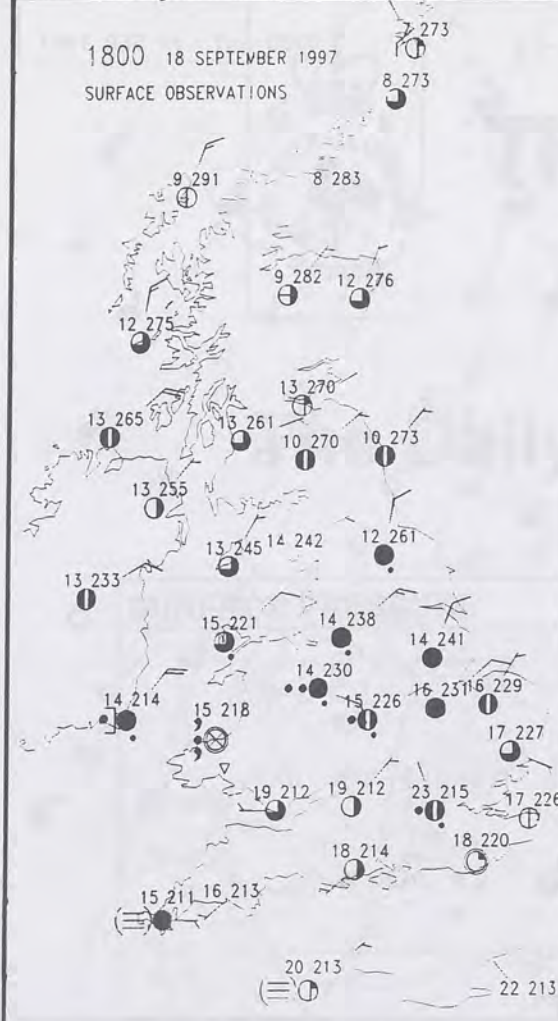 7 273
1800 18 SEPTEMBER 1997
SURFACE OBSERVATIONS
8 273
9 291
8 283
9 282
12 276
12 275
13 270
13 265
13 261
10 270
10 273
13 255
12 261
13 245
14 242
13 233
15 221
14 238
14 241
14 230
14 214
15 218
15 226
16 231
16 229
17 227
19 212
19 212
23 215
17 226
18 214
18 220
15 211
16 213
20 213
22 213